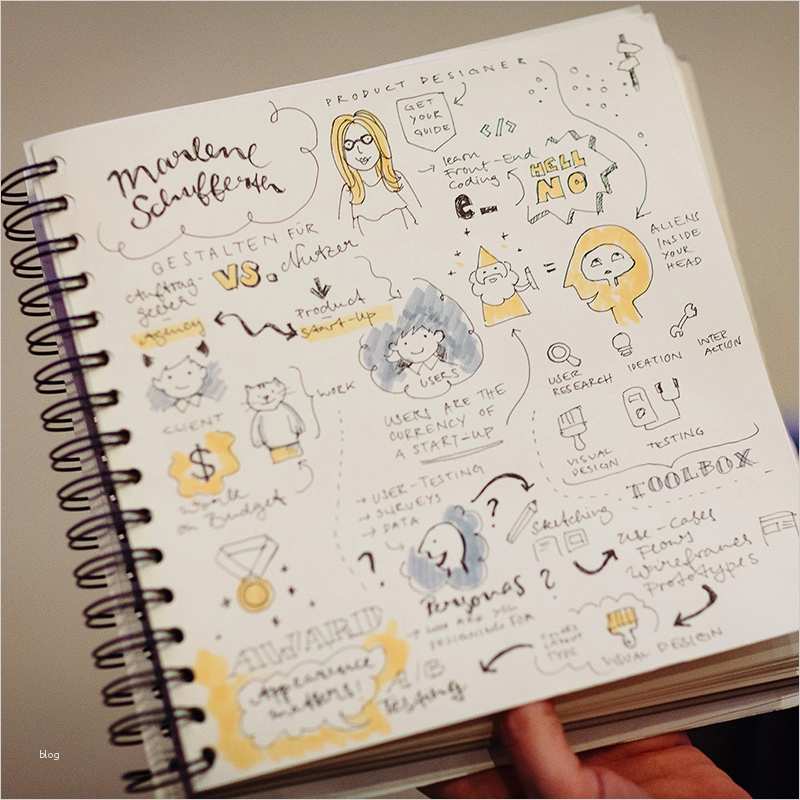 PRODUCT DESIGNER
GET
YOUR
GUIDE
</>
Marlene
Schufferth
→ learn
Front-End
Coding
HELL
NO
GESTALTEN FÜR
Auftrag-
geber
VS. Nutzer
Agency
Product
Start-up
=
ALIENS
INSIDE
YOUR
HEAD
CLIENT
WORK
USERS
USERS ARE THE
CURRENCY OF
A START-UP
$
Work
on Budget
USER
RESEARCH
IDEATION
INTER
ACTION
VISUAL
DESIGN
TESTING
TOOLBOX
→ USER-TESTING
→ SURVEYS
→ DATA
?
?
Personas ?
→ WHO ARE YOU
DESIGNING FOR
Sketching
Use-Cases
Flows
Wireframes
Prototypes
VISUAL DESIGN
TYPE
A/B
Testing
AWARD
Appearance
matters!
blog